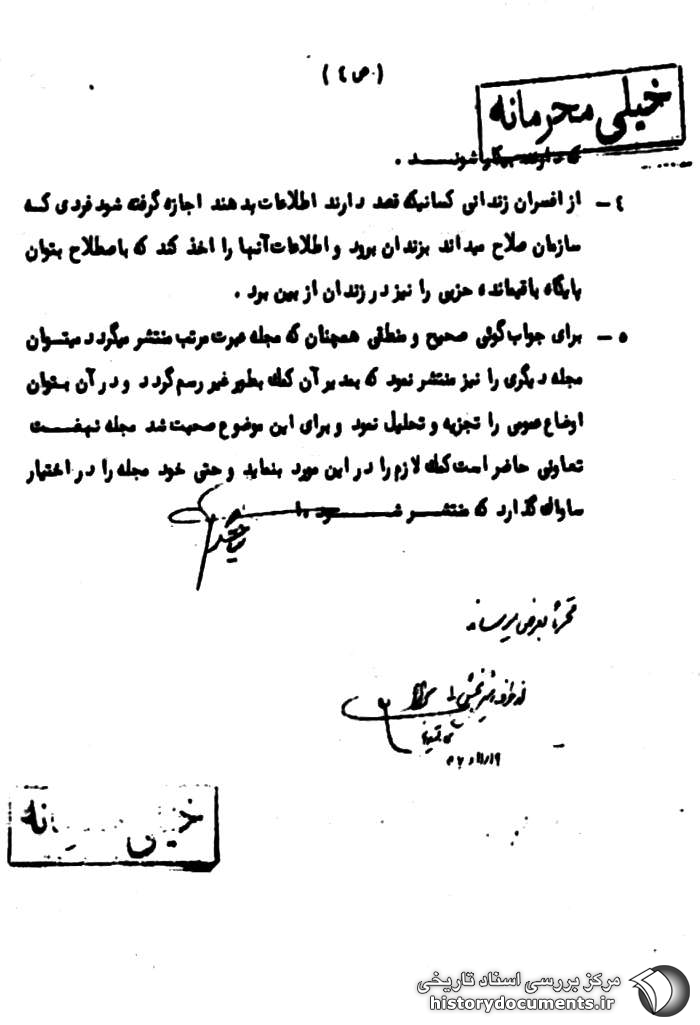 ( ص ٤ )
خیلی محرمانه
که دارند بیکار شوند .
٤ – از افسران زندانی کسانیکه قصد دارند اطلاعات بدهند اجازه گرفته شود فردی که
سازمان صلاح میداند بزندان برود و اطلاعات آنها را اخذ کند که باصطلاح بتوان
پایگاه باقیمانده حزبی را نیز در زندان از بین برد .
٥ – برای جواب گوئی صحیح و منطقی همچنان که مجله عبرت مرتب منتشر میگردد میتوان
مجله دیگری را نیز منتشر نمود که بمدیر آن کمک بطور غیر رسم گردد و در آن بتوان
اوضاع عمومی را تجزیه و تحلیل نمود و برای این موضوع صحبت شد مجله نهضت
تعاونی حاضر است کمک لازم را در این مورد بنماید و حتی خود مجله را در اختیار
ساواک گذارد که منتشر شود .
بعرض میرساند
خیلی محرمانه
مرکز بررسی اسناد تاریخی
historydocuments.ir